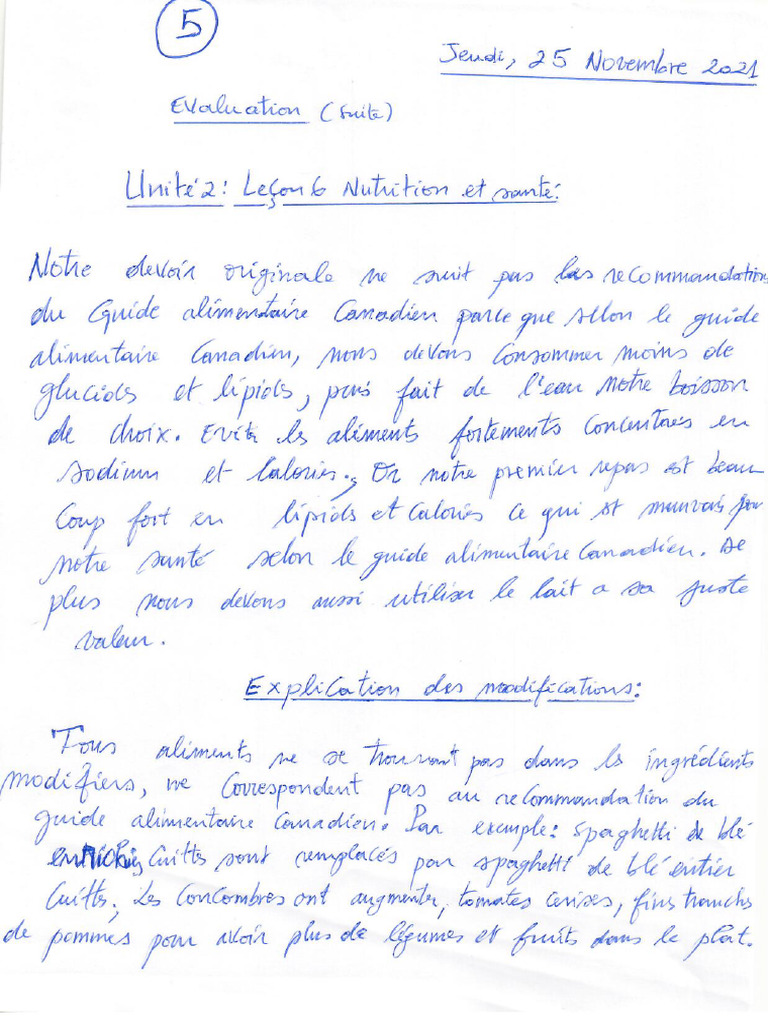 5
Jeudi, 25 Novembre 2021
Evaluation (suite)
Unité 2 : Leçon 6 Nutrition et santé.
Notre devoir originale ne suit pas les recommandations
du Guide alimentaire Canadien parce que sellon le guide
alimentaire Canadien, nous devons consommer moins de
glucids et lipids, puis fait de l'eau notre boisson
de choix. Evité les aliments fortements concentrés en
sodium et calories., Or notre premier repas est beau
coup fort en lipids et calories ce qui st mauvais pour
notre santé selon le guide alimentaire Canadien. De
plus nous devons aussi utiliser le lait a sa juste
valeur.
Explication des modifications:
Tous aliments ne se trouvant pas dans ls ingrédients
modifiers, ne correspondent pas au recommandation du
guide alimentaire Canadien. Par exemple: spaghetti de blé
enrichis cuitts sont remplacés par spaghetti de blé entier
cuitts, Les concombres ont augmenter, tomates cerises, fins tranchs
de pommes pour avoir plus de légumes et fruits dans le plat.